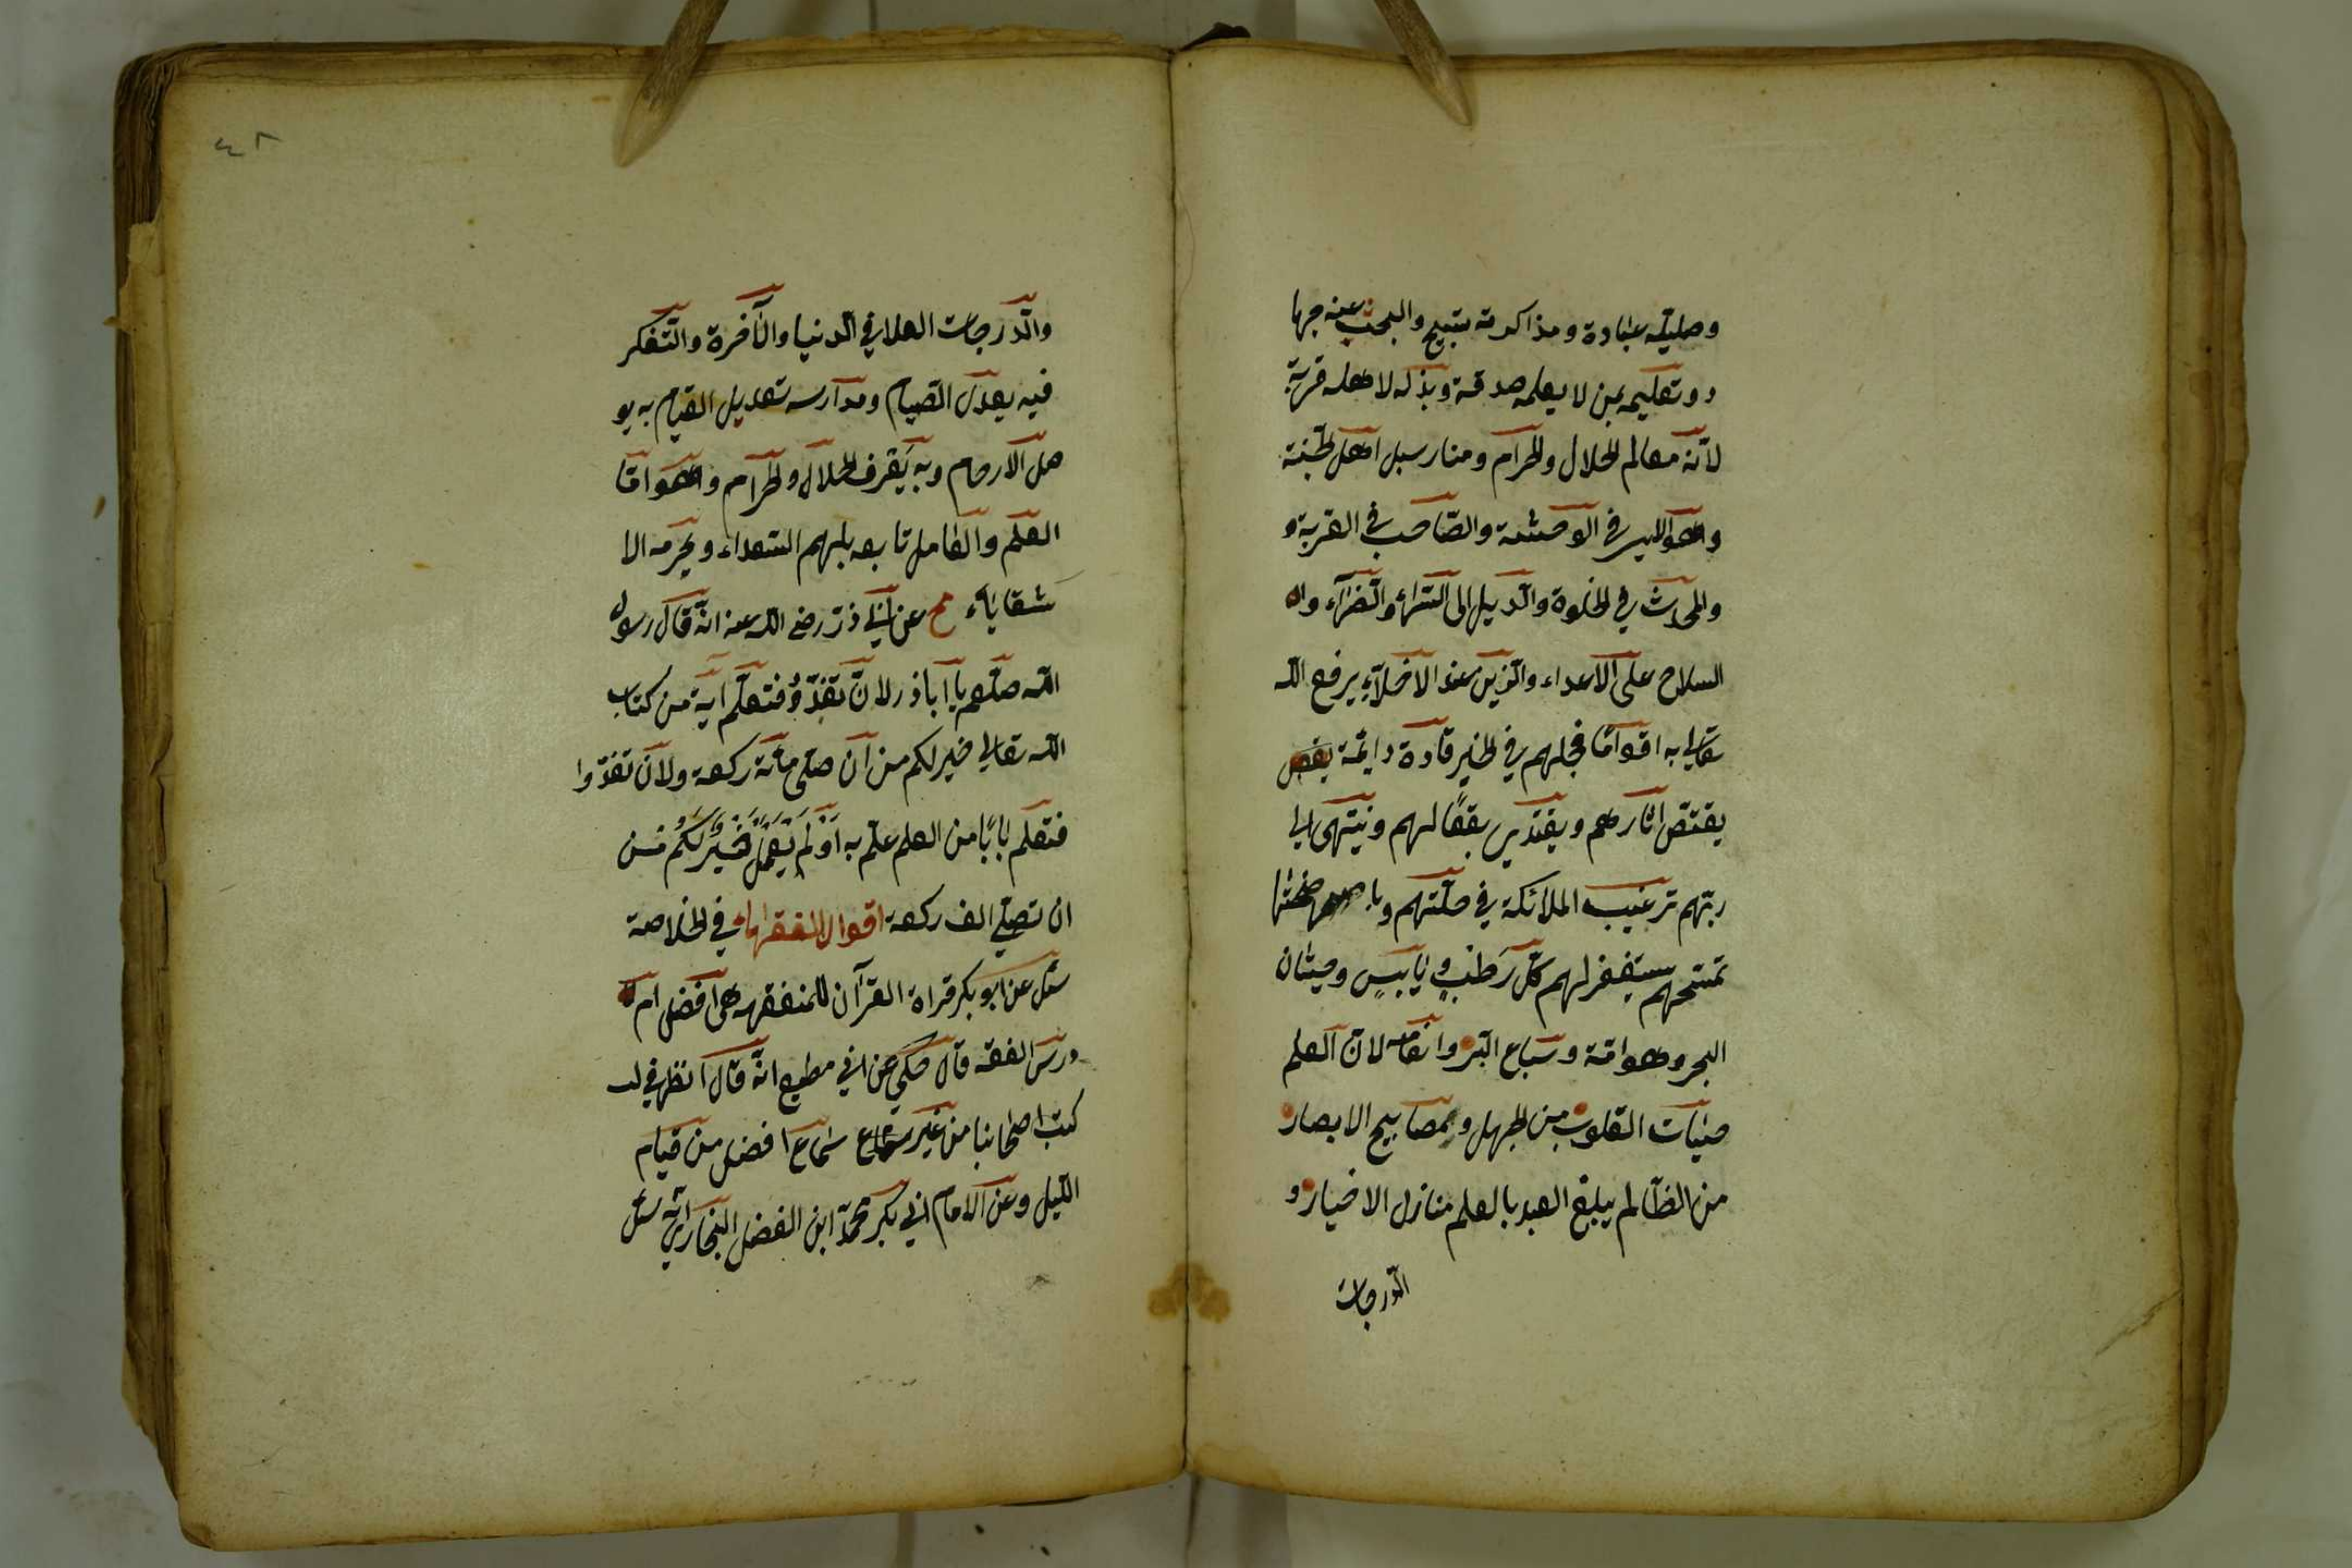 وطلبه عبادة ومذاكرته تسبيح والبحث عنه جها
د وتعليمه لمن لا يعلمه صدقة وبذله لاهله قربة
لانّه معالم الحلال والحرام ومنار سبل اهل الجنة
وهو الانيس في الوحشة والصّاحب في الغربة و
والمحدث في الخلوة والدّليل الى السّراء والضّرآء و
السلاح على الاعداء والزّين عند الاخلآء يرفع اللّه
تعالى به اقوامًا فيجعلهم في الخير قادة دايمة
يقتصّ اثارهم ويقتدي بفعالهم وينتهى الى
ربّهم ترغيب الملائكة في خلّتهم وباجنحتها
تمسحهم يستغفر لهم كلّ رَطْبٍ ويَابِسٍ وحيتان
البحر وهوامّه وسباع البرّ وانعامه لانّ العلم
حيات القلوب من الجهل ومصابيح الابصار
من الظلم يبلغ العبد بالعلم منازل الاخيار و
الدّرجات
٤٢
والدّرجات العلا في الدّنيا والآخرة والتّفكر
فيه يعدل الصّيام ومدارسه تعديل القيام به يو
صل الارحام وبه يعرف الحلال والحرام وهو امّا
العلم والعامل تابعه يلهم السّعداء ويحرمه الا
شقاياء عن ابي ذرّ رضى اللّه عنه انّه قال رسول
اللّه صلّعم يا اباذر لان تغدّو فتعلّم اية من كتاب
اللّه تعالى خير لكم من ان صلّى مائة ركعة ولان تغدّوا
فتعلّم بابًا من العلم علم به اَوْ لَمْ يَعْمَلْ خَيْرٌ لَكُمْ مِنْ
ان تصلّى الف ركعة اقوال الفقهاء في الخلاصة
سئل عن ابو بكر قراة القرآن للمتفقه هى افضل ام
درس الفقه قال حكي عن ابي مطيع انّه قال انظر في
كتب اصحابنا من غير سماع افضل من قيام
اللّيل وعن الامام ابي بكر محمّد ابن الفضل البخارى انّه سئل